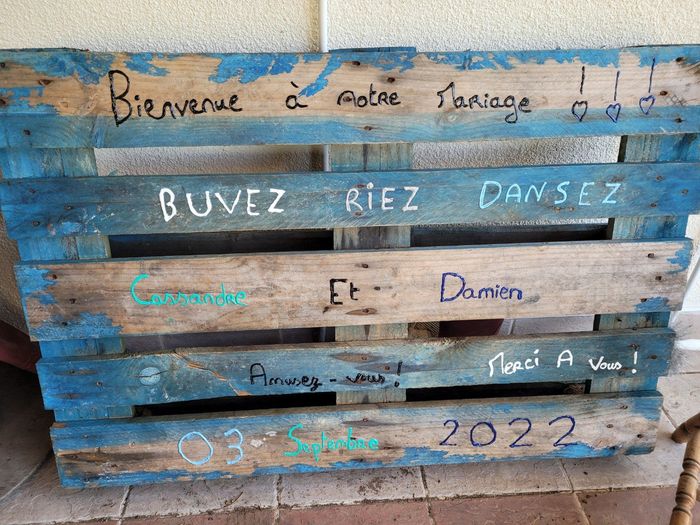 Bienvenue à notre Mariage !!!
BUVEZ RIEZ DANSEZ
Cassandre Et Damien
Amusez-vous! Merci A Vous!
03 Septembre 2022